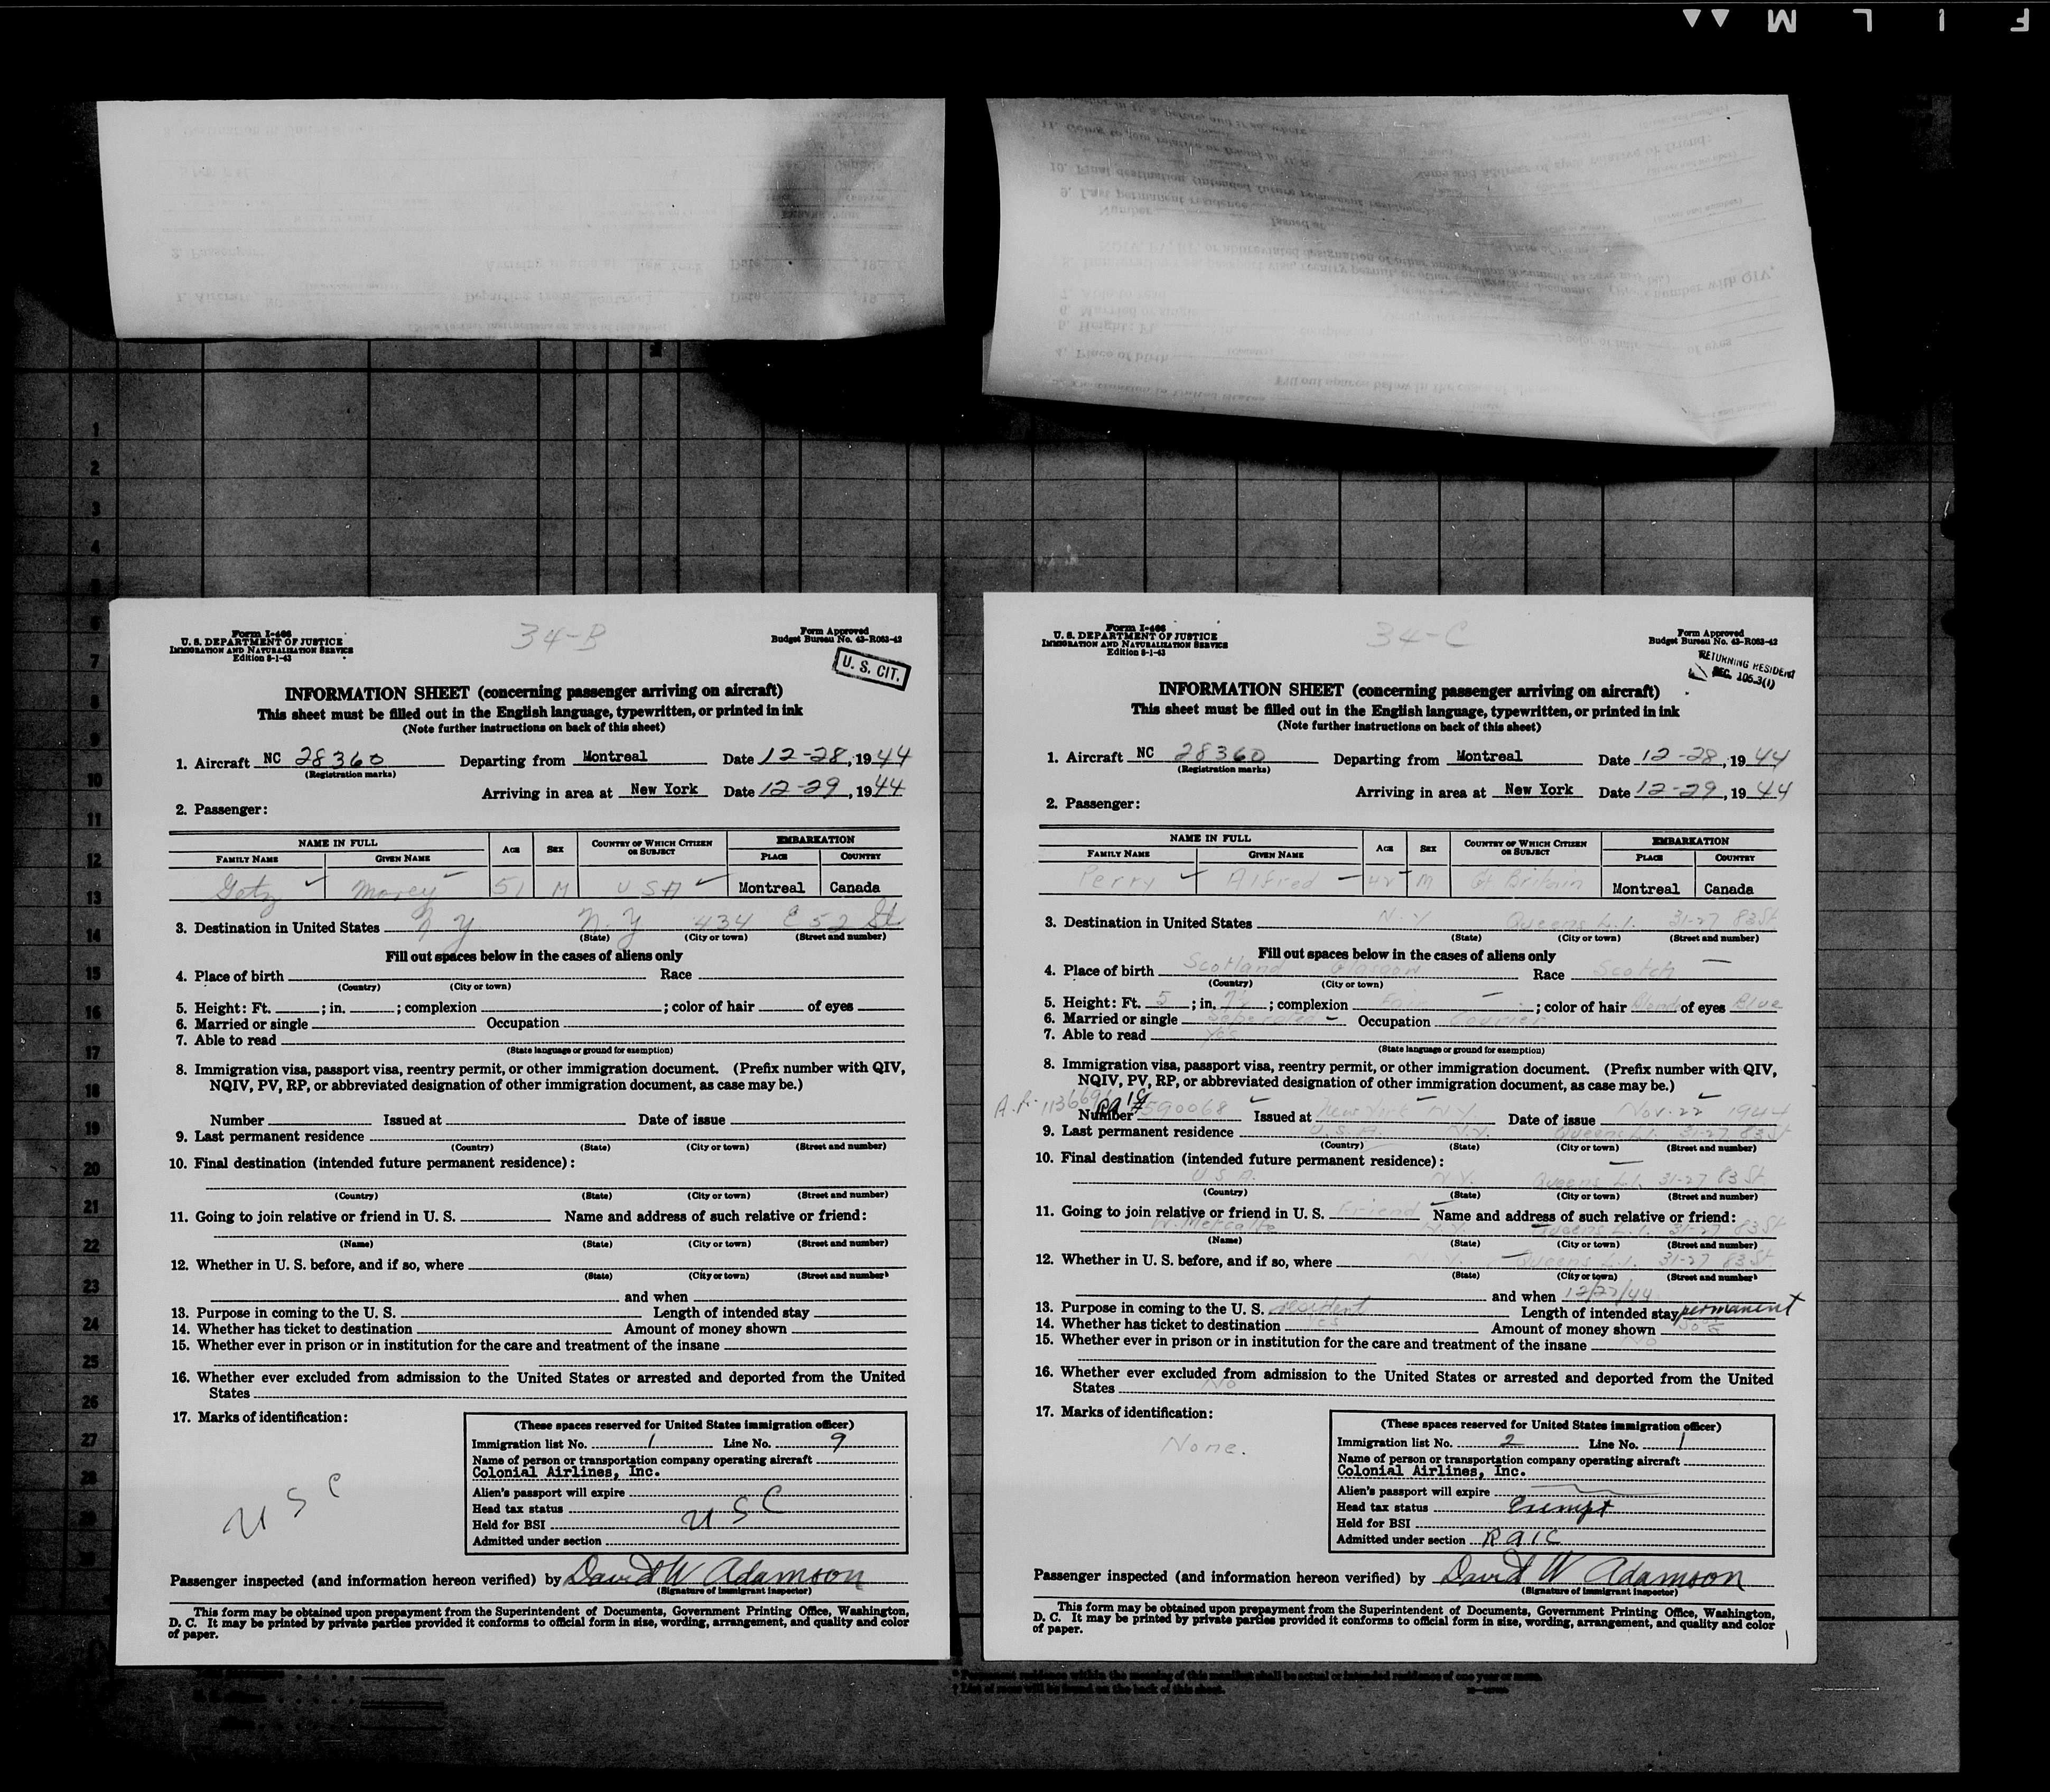 F I L M
1
2
3
4
5
6
7
8
9
10
11
12
13
14
15
16
17
18
19
20
21
22
23
24
25
26
27
28
29
34-B
Form I-466
U. S. DEPARTMENT OF JUSTICE
IMMIGRATION AND NATURALIZATION SERVICE
Edition 8-1-43
Form Approved
Budget Bureau No. 43-R063-42
U. S. CIT.
INFORMATION SHEET (concerning passenger arriving on aircraft)
This sheet must be filled out in the English language, typewritten, or printed in ink
(Note further instructions on back of this sheet)
1. Aircraft NC 28360 Departing from Montreal Date 12-28, 1944
(Registration marks)
Arriving in area at New York Date 12-29, 1944
2. Passenger:
NAME IN FULL AGE SEX COUNTRY OF WHICH CITIZEN OR SUBJECT EMBARKATION
FAMILY NAME GIVEN NAME PLACE COUNTRY
Getz Morey 51 M USA Montreal Canada
3. Destination in United States N.Y. N.Y 434 E 52 St
(State) (City or town) (Street and number)
Fill out spaces below in the cases of aliens only
4. Place of birth Race
(Country) (City or town)
5. Height: Ft. ; in. ; complexion ; color of hair of eyes
6. Married or single Occupation
7. Able to read
(State language or ground for exemption)
8. Immigration visa, passport visa, reentry permit, or other immigration document. (Prefix number with QIV,
NQIV, PV, RP, or abbreviated designation of other immigration document, as case may be.)
Number Issued at Date of issue
9. Last permanent residence
(Country) (State) (City or town) (Street and number)
10. Final destination (intended future permanent residence):
(Country) (State) (City or town) (Street and number)
11. Going to join relative or friend in U. S. Name and address of such relative or friend:
(Name) (State) (City or town) (Street and number)
12. Whether in U. S. before, and if so, where
(State) (City or town) (Street and number)
and when
13. Purpose in coming to the U. S. Length of intended stay
14. Whether has ticket to destination Amount of money shown
15. Whether ever in prison or in institution for the care and treatment of the insane
16. Whether ever excluded from admission to the United States or arrested and deported from the United
States
17. Marks of identification:
USC
(These spaces reserved for United States immigration officer)
Immigration list No. 1 Line No. 9
Name of person or transportation company operating aircraft
Colonial Airlines, Inc.
Alien's passport will expire
Head tax status
Held for BSI USC
Admitted under section
Passenger inspected (and information hereon verified) by David W Adamson
(Signature of immigrant inspector)
This form may be obtained upon prepayment from the Superintendent of Documents, Government Printing Office, Washington,
D. C. It may be printed by private parties provided it conforms to official form in size, wording, arrangement, and quality and color
of paper.
34-C
Form I-466
U. S. DEPARTMENT OF JUSTICE
IMMIGRATION AND NATURALIZATION SERVICE
Edition 8-1-43
Form Approved
Budget Bureau No. 43-R063-42
RETURNING RESIDENT
SEC. 105.3(1)
INFORMATION SHEET (concerning passenger arriving on aircraft)
This sheet must be filled out in the English language, typewritten, or printed in ink
(Note further instructions on back of this sheet)
1. Aircraft NC 28360 Departing from Montreal Date 12-28, 1944
(Registration marks)
Arriving in area at New York Date 12-29, 1944
2. Passenger:
NAME IN FULL AGE SEX COUNTRY OF WHICH CITIZEN OR SUBJECT EMBARKATION
FAMILY NAME GIVEN NAME PLACE COUNTRY
Perry Alfred 42 M Gt. Britain Montreal Canada
3. Destination in United States N.Y Queens L.I. 31-27 83 St
(State) (City or town) (Street and number)
Fill out spaces below in the cases of aliens only
4. Place of birth Scotland Glasgow Race Scotch
(Country) (City or town)
5. Height: Ft. 5 ; in. 7½ ; complexion Fair ; color of hair Blond of eyes Blue
6. Married or single Seperated Occupation Courier
7. Able to read Yes
(State language or ground for exemption)
8. Immigration visa, passport visa, reentry permit, or other immigration document. (Prefix number with QIV,
NQIV, PV, RP, or abbreviated designation of other immigration document, as case may be.)
Number 590068 Issued at New York N.Y. Date of issue Nov. 22 1944
9. Last permanent residence U.S.A. N.Y. Queens L.I. 31-27 83 St
(Country) (State) (City or town) (Street and number)
10. Final destination (intended future permanent residence):
U.S.A. N.Y. Queens L.I. 31-27 83 St
(Country) (State) (City or town) (Street and number)
11. Going to join relative or friend in U. S. Friend Name and address of such relative or friend:
W. Metcalfe N.Y. Queens L.I. 31-27 83 St
(Name) (State) (City or town) (Street and number)
12. Whether in U. S. before, and if so, where N.Y. Queens L.I. 31-27 83 St
(State) (City or town) (Street and number)
and when 12/27/44
13. Purpose in coming to the U. S. resident Length of intended stay permanent
14. Whether has ticket to destination Yes Amount of money shown
15. Whether ever in prison or in institution for the care and treatment of the insane No
16. Whether ever excluded from admission to the United States or arrested and deported from the United
States No
17. Marks of identification:
None.
(These spaces reserved for United States immigration officer)
Immigration list No. 2 Line No. 1
Name of person or transportation company operating aircraft
Colonial Airlines, Inc.
Alien's passport will expire
Head tax status Exempt
Held for BSI
Admitted under section RAIC
Passenger inspected (and information hereon verified) by David W Adamson
(Signature of immigrant inspector)
This form may be obtained upon prepayment from the Superintendent of Documents, Government Printing Office, Washington,
D. C. It may be printed by private parties provided it conforms to official form in size, wording, arrangement, and quality and color
of paper.
* Permanent residence within the meaning of this manifest shall be actual or intended residence of one year or more.
† List of races will be found on the back of this sheet.